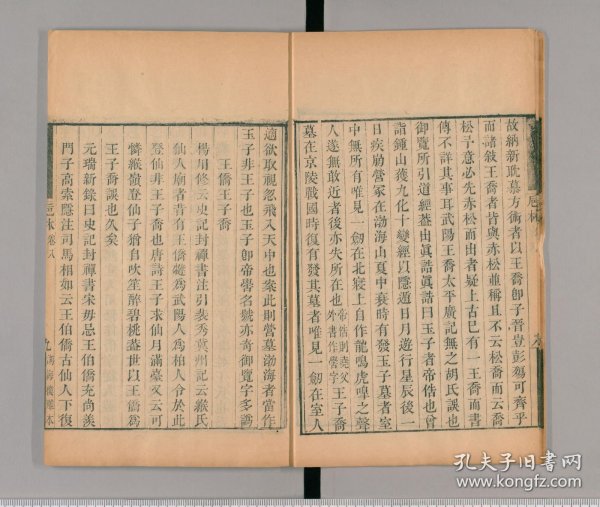 故納新耽慕方術者以王喬卽子晉豈彭鏗可齊乎
而諸敍王喬者皆與赤松並稱且不云松喬而云喬
松予意必先赤松而出者疑上古已有一王喬而書
傳不詳其事耳武陽王喬太平廣記無之胡氏誤也
御覽所引道經蓋出眞誥眞誥曰玉子者帝俈也曾
詣鍾山獲九化十變經以隱遁日月遊行星辰後一
日疾崩營冢在渤海山夏中衰時有發玉子墓者室
中無所有唯見一劒在北寢上自作龍鳴虎嘷之聲
人遂無敢近者後亦失所在也帝俈則堯父外書作嚳字王子喬
墓在京陵戰國時復有發其墓者唯見一劒在室人
適欲取視忽飛入天中也案此則營墓渤海者當作
玉子非王子也玉子卽帝嚳名號亦奇御覽字多譌
王僑王子喬
楊用修云史記封禪書注引裴秀冀州記云緱氏
仙人廟者昔有王僑犍爲武陽人爲柏人令於此
登仙非王子喬也唐詩王子求仙月滿臺又云可
憐緱嶺登仙子猶自吹笙醉碧桃蓋世以王僑爲
王子喬誤也久矣
元瑞新錄曰史記封禪書宋毋忌王伯僑充尚羨
門子高索隱注司馬相如云王伯僑古仙人下復
卮林
卷八
九
湖海樓雕本
孔夫子旧书网
www.kongfz.com